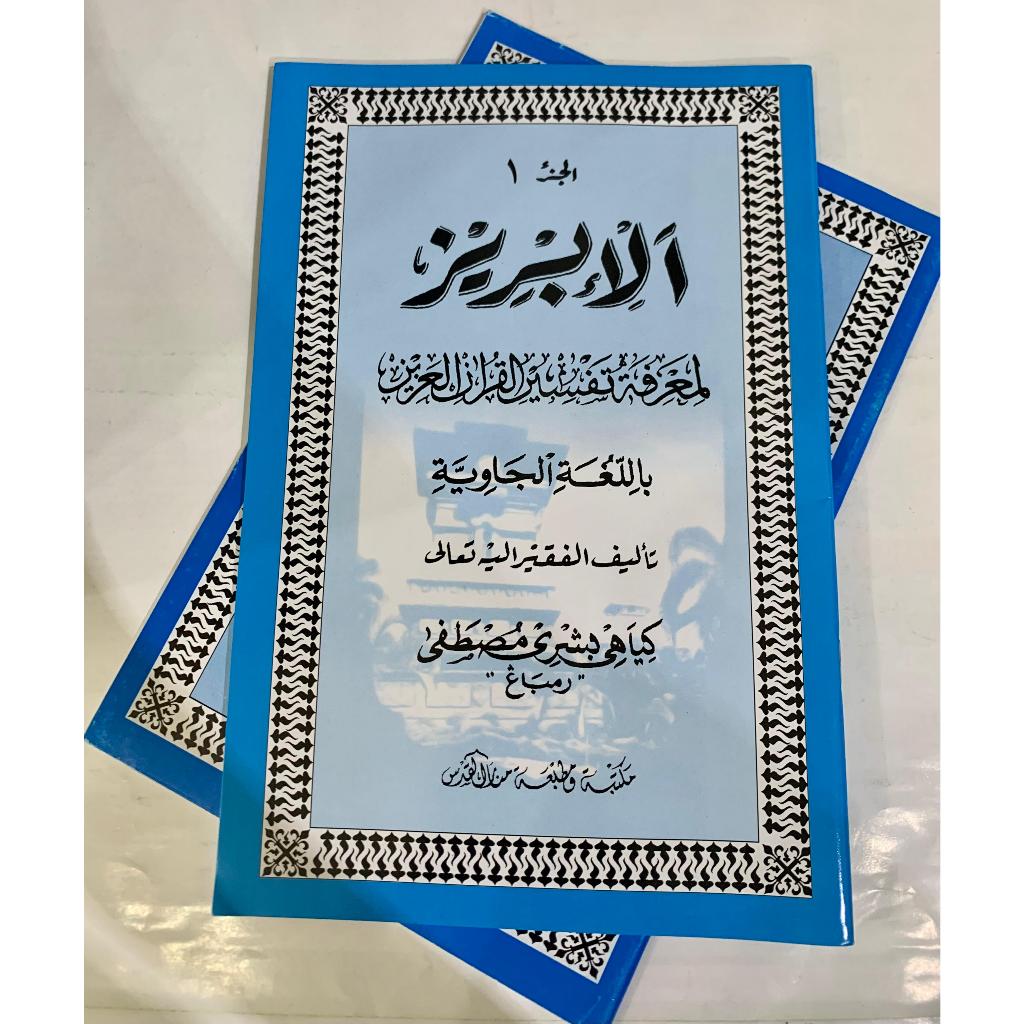 الجزء ١
اَلْاِبْرِيْز
لِمَعْرِفَةِ تَفْسِيْرِ الْقُرْاٰنِ الْعَزِيْزِ
بِاللُّغَةِ الْجَاوِيَّةِ
تأليف الفقير اليه تعالى
كياهي بشري مصطفى
"رمباڠ"
مكتبة ومطبعة منارا القدس